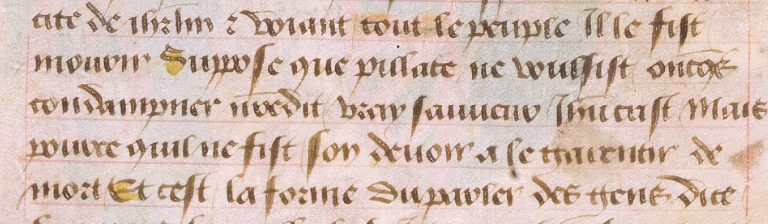 cite de ihrlm et voiant tout le peuple Il le fist
mouoir Suppose que pillate ne voulsist oncqs
condampner nredit vray sauueur Ihucrist Mais
pource quil ne fist son deuoir a le garentir de
mort Et cest la forme du parler des gens dicte